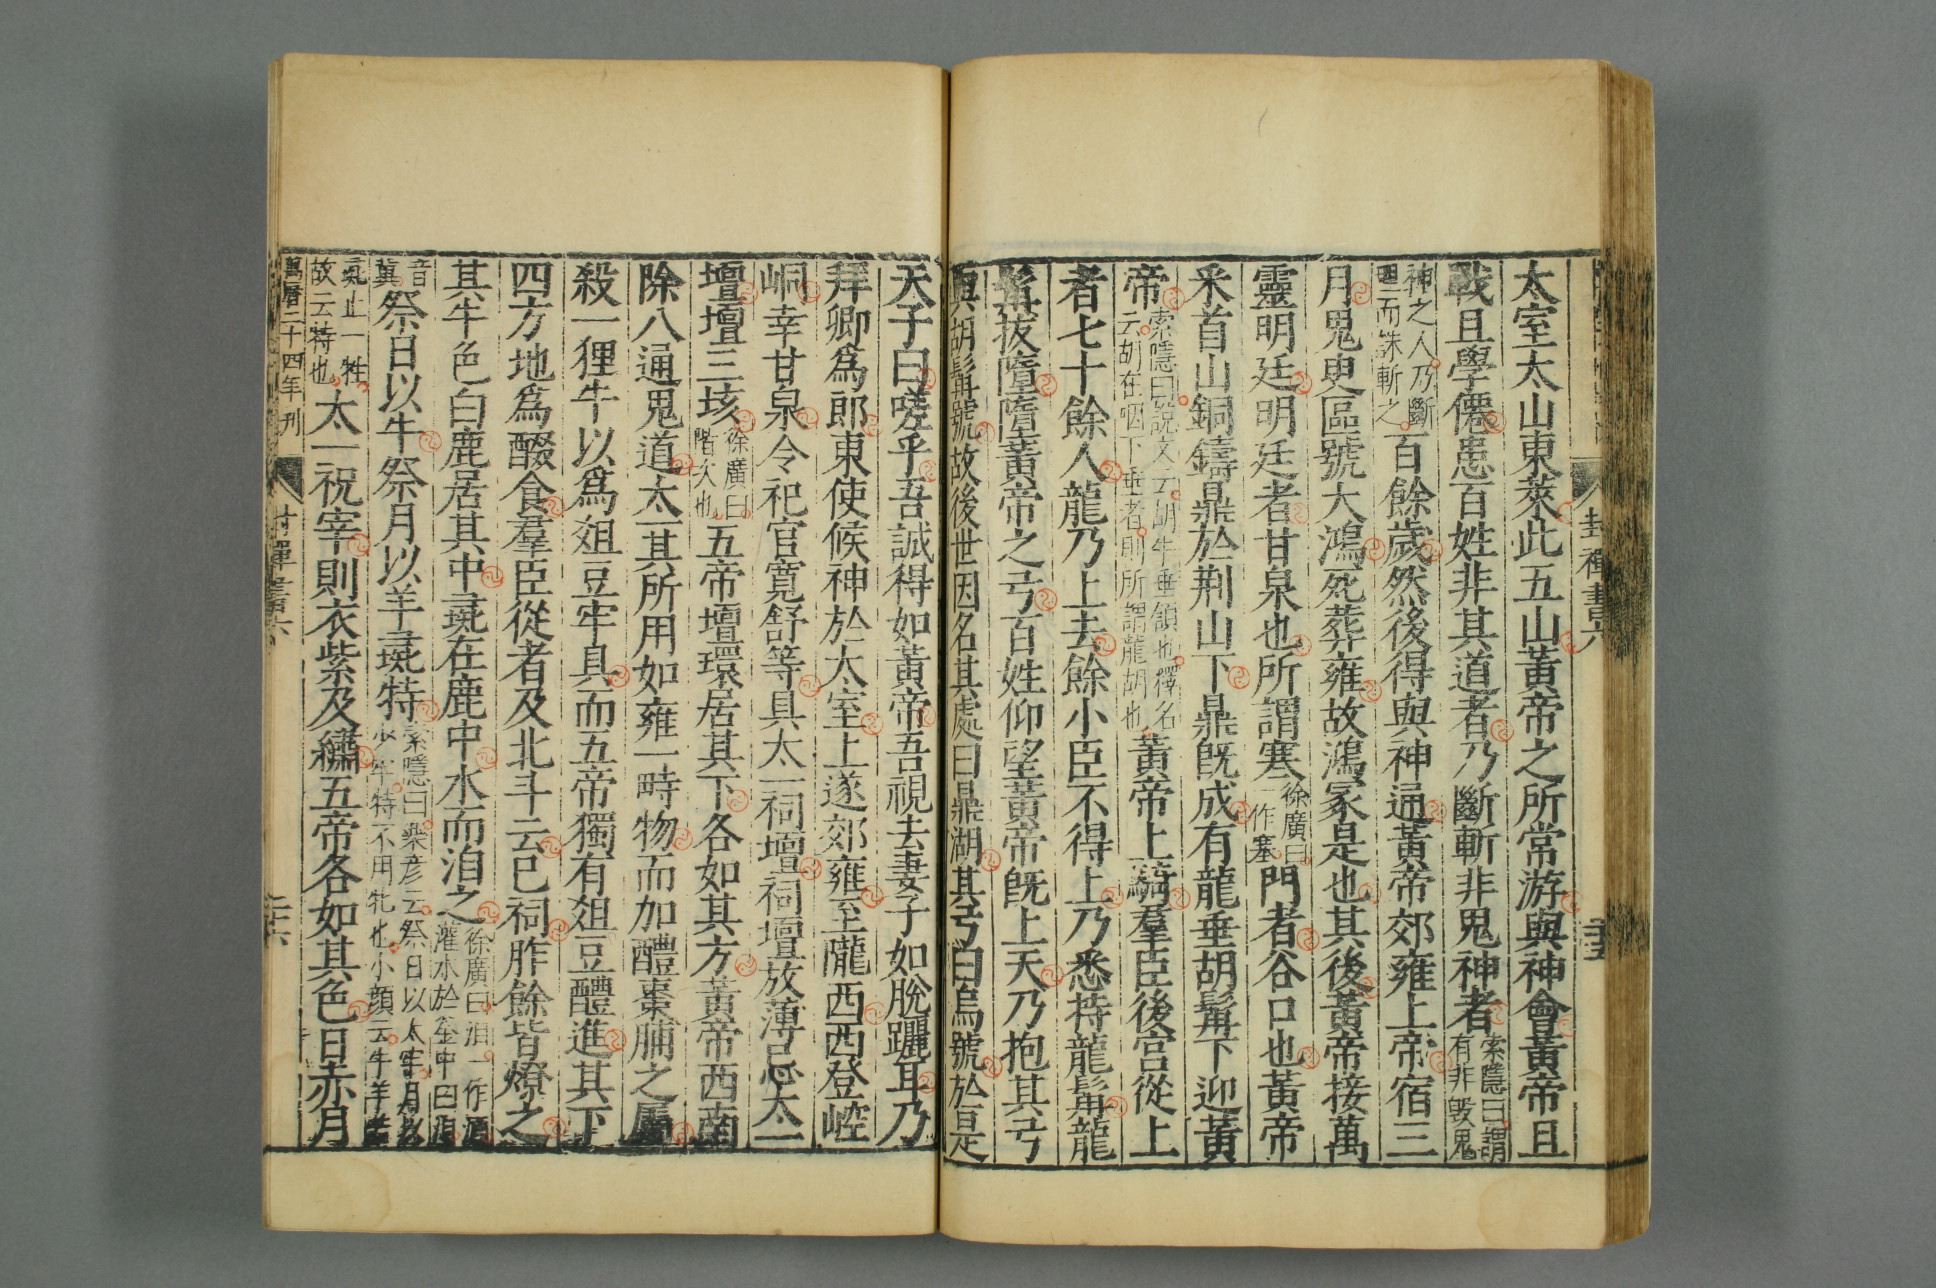 封禪書六
二十五
太室太山東萊此五山黃帝之所常游與神會黃帝且
戰且學僊患百姓非其道者乃斷斬非鬼神者索隱曰謂有非毀鬼
神之人乃斷理而誅斬之百餘歲然後得與神通黃帝郊雍上帝宿三
月鬼臾區號大鴻死葬雍故鴻冢是也其後黃帝接萬
靈明廷明廷者甘泉也所謂寒徐廣曰一作塞門者谷口也黃帝
采首山銅鑄鼎於荊山下鼎既成有龍垂胡髯下迎黃
帝索隱曰說文云胡牛垂頷也釋名云胡在咽下垂者則所謂龍胡也黃帝上騎羣臣後宮從上
者七十餘人龍乃上去餘小臣不得上乃悉持龍髯龍
髯拔墮墮黃帝之弓百姓仰望黃帝既上天乃抱其弓
與胡髯號故後世因名其處曰鼎湖其弓曰烏號於是
天子曰嗟乎吾誠得如黃帝吾視去妻子如脫躧耳乃
拜卿為郎東使候神於太室上遂郊雍至隴西西登崆
峒幸甘泉令祀官寬舒等具太一祠壇祠壇放薄忌太一
壇壇三垓徐廣曰階次也五帝壇環居其下各如其方黃帝西南
除八通鬼道太一其所用如雍一畤物而加醴棗脯之屬
殺一狸牛以為俎豆牢具而五帝獨有俎豆醴進其下
四方地為醊食羣臣從者及北斗云巳祠胙餘皆燎之
其牛色白鹿居其中彘在鹿中水而洎之徐廣曰洎一作酒灌水於釜中曰洎
音冀祭日以牛祭月以羊彘特索隱曰樂彥云祭日以太牢月以少牢特不用牝也小顏云牛羊若
彘止一牲故云特也太一祝宰則衣紫及繡五帝各如其色日赤月
萬曆二十四年刊
封禪書六
二十六